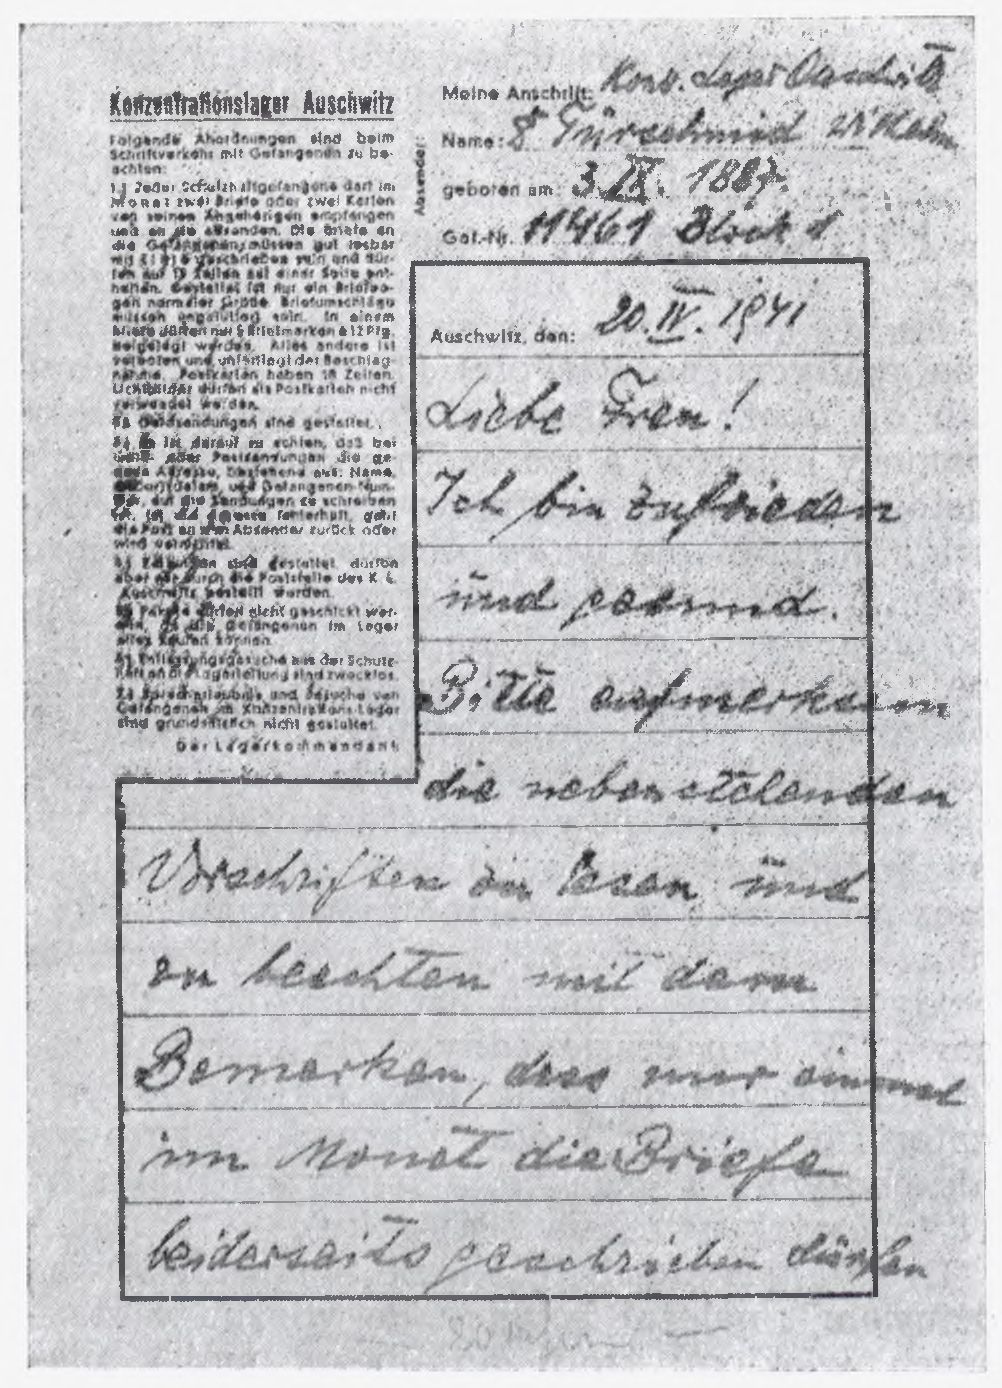 Konzentrationslager Auschwitz
Folgende Anordnungen sind beim
Schriftverkehr mit Gefangenen zu be-
achten:
1.) Jeder Schutzhaftgefangene darf im
Monat zwei Briefe oder zwei Karten
von seinen Angehörigen empfangen
und an sie absenden. Die Briefe an
die Gefangenen müssen gut lesbar
mit geschrieben sein und dür-
fen nur 15 Zeilen auf einer Seite ent-
halten. Gestattet ist nur ein Briefbo-
gen normaler Größe. Briefumschläge
müssen ungefüttert sein. In einem
Briefe dürfen nur 5 Briefmarken à 12 Pfg.
beigelegt werden. Alles andere ist
verboten und unterliegt der Beschlag-
nahme. Postkarten haben 10 Zeilen.
Lichtbilder dürfen als Postkarten nicht
verwendet werden.
2.) Geldsendungen sind gestattet.
3.) Es ist darauf zu achten, daß bei
Geld- oder Postsendungen die ge-
naue Adresse, bestehend aus: Name,
Geburtsdatum, und Gefangenen-Num-
mer, auf die Sendungen zu schreiben
ist. Ist die Adresse fehlerhaft, geht
die Post an den Absender zurück oder
wird vernichtet.
4.) Zeitungen sind gestattet, dürfen
aber nur durch die Poststelle des K. L.
Auschwitz bestellt werden.
5.) Pakete dürfen nicht geschickt wer-
den, da die Gefangenen im Lager
alles kaufen können.
6.) Entlassungsgesuche aus der Schutz-
haft an die Lagerleitung sind zwecklos.
7.) Sprecherlaubnis und Besuche von
Gefangenen im Konzentrations-Lager
sind grundsätzlich nicht gestattet.
Der Lagerkommandant
Absender:
Meine Anschrift: Konz. Lager Auschwitz
Name: Türschmid Wilhelm
geboren am: 3. IX. 1887.
Gef.-Nr. 11461 Block 1
Auschwitz, den: 20. IV. 1941
Liebe Fren!
Ich bin zufrieden
und gesund.
Bitte aufmerksam
die nebenstehenden
Vorschriften zu lesen und
zu beachten mit dem
Bemerken, dass nur einmal
im Monat die Briefe
beiderseits geschrieben dürfen